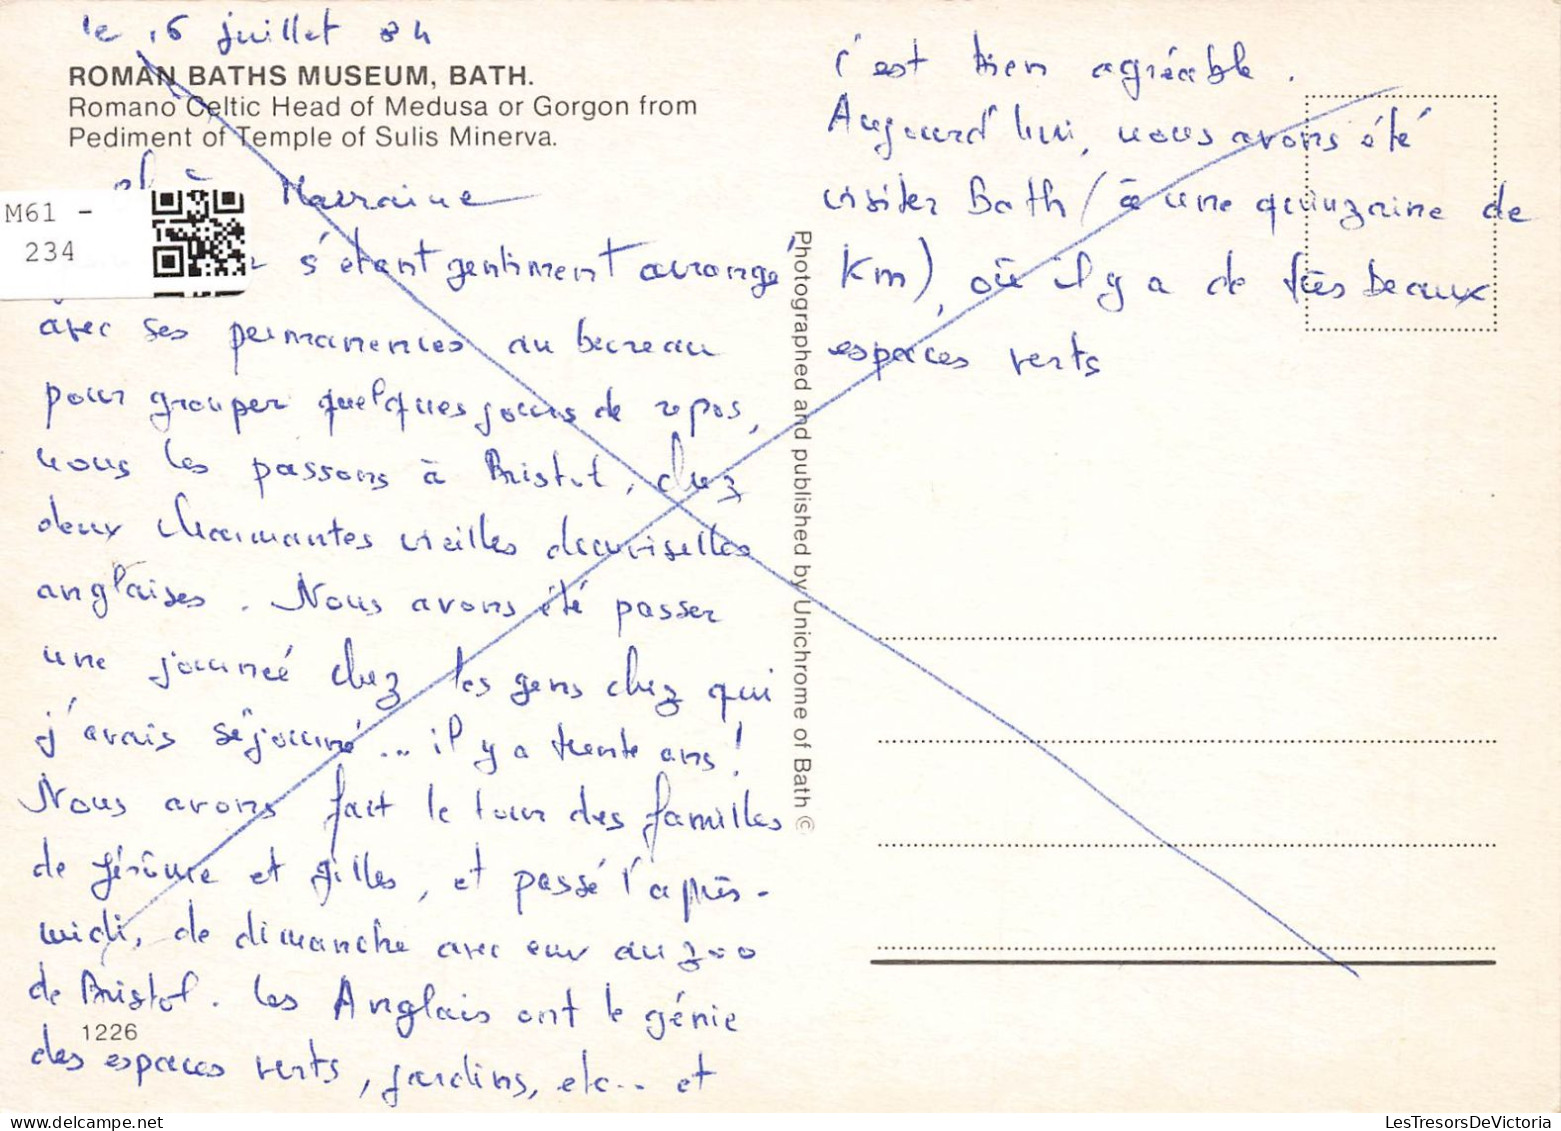 le 16 juillet 84
ROMAN BATHS MUSEUM, BATH.
Romano Celtic Head of Medusa or Gorgon from
Pediment of Temple of Sulis Minerva.
Marraine
M61 -
234
s'étant gentiment arrangé
avec ses permanences au bureau
pour grouper quelques jours de repos,
nous les passons à Bristol, chez
deux charmantes vieilles demoiselles
anglaises. Nous avons été passer
une journée chez les gens chez qui
j'avais séjourné... il y a trente ans!
Nous avons fait le tour des familles
de Jérôme et Gilles, et passé l'après-
midi, de dimanche avec eux au zoo
de Bristol. Les Anglais ont le génie
1226
des espaces verts, jardins, etc... et
c'est bien agréable.
Aujourd'hui, nous avons été
visiter Bath (à une quinzaine de
km), où il y a de très beaux
espaces verts
Photographed and published by Unichrome of Bath ©
LesTresorsDeVictoria